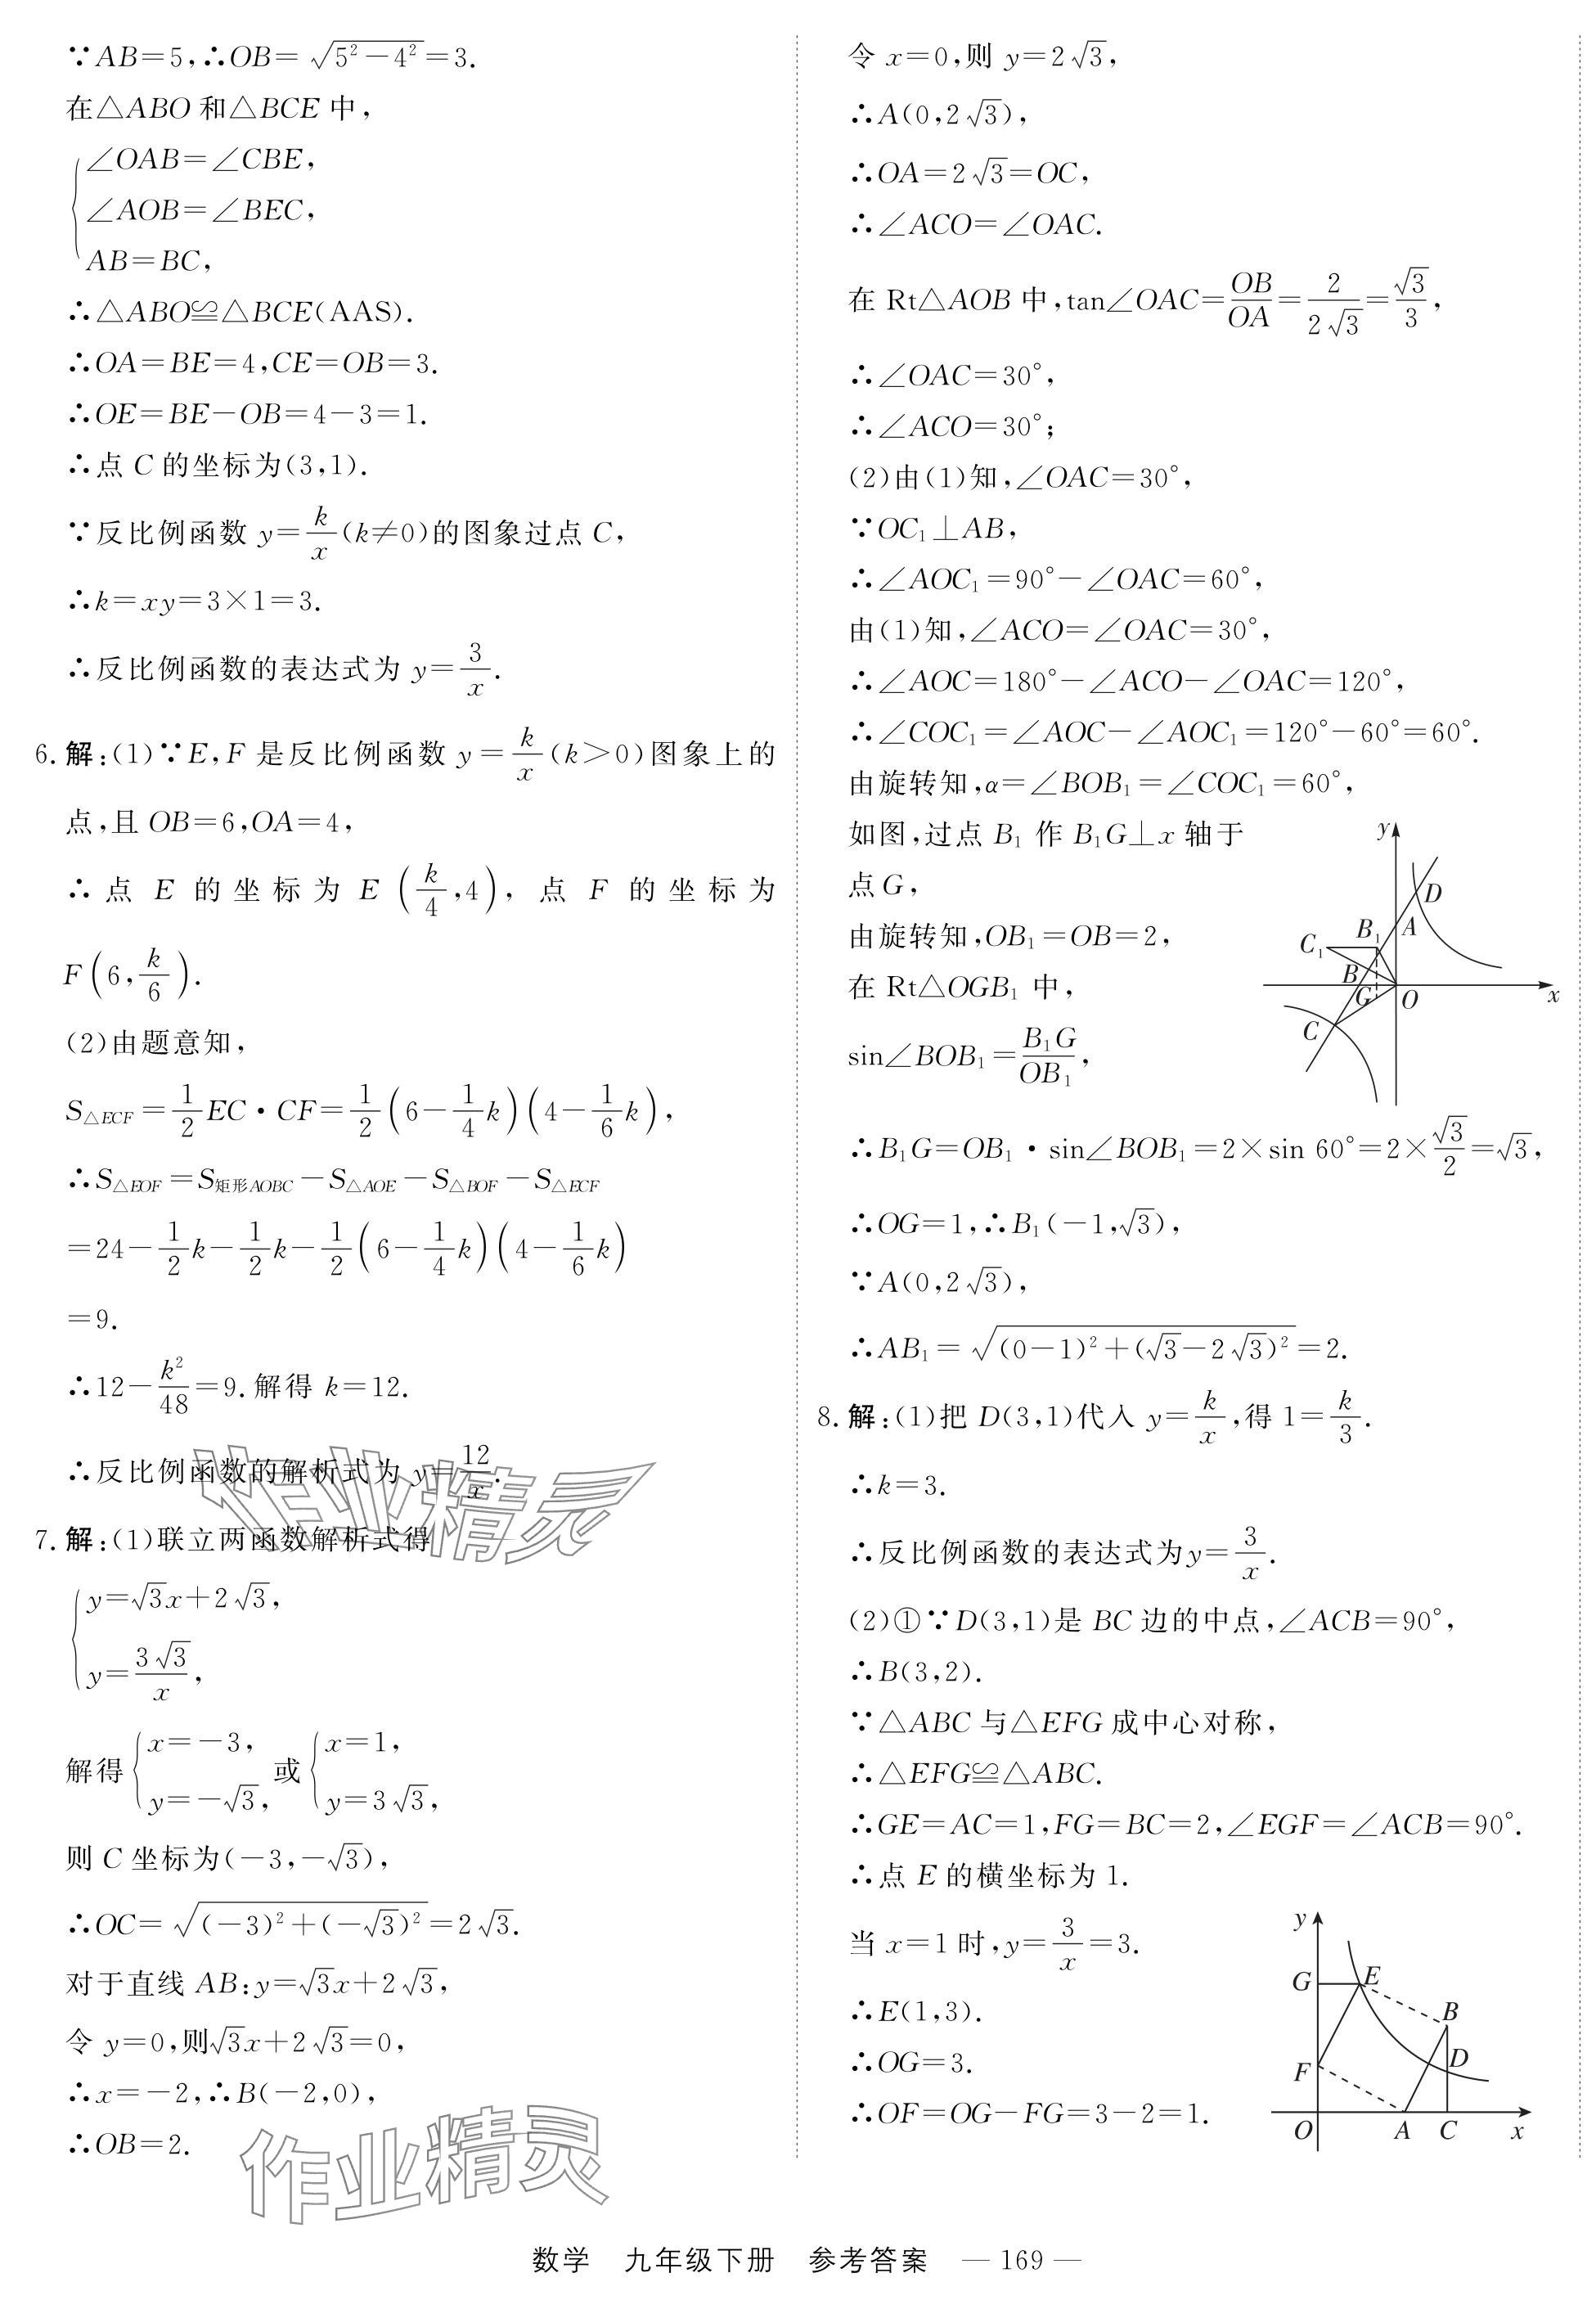 ∵AB=5,∴OB=√(5²-4²)=3.
在△ABO 和△BCE 中,
{∠OAB=∠CBE,
∠AOB=∠BEC,
AB=BC,
∴△ABO≌△BCE(AAS).
∴OA=BE=4,CE=OB=3.
∴OE=BE-OB=4-3=1.
∴点 C 的坐标为(3,1).
∵反比例函数 y=k/x(k≠0)的图象过点 C,
∴k=xy=3×1=3.
∴反比例函数的表达式为 y=3/x.
6. 解:(1)∵E,F 是反比例函数 y=k/x(k>0)图象上的
点,且 OB=6,OA=4,
∴点 E 的坐标为 E(k/4,4),点 F 的坐标为
F(6,k/6).
(2)由题意知,
S△ECF=1/2EC·CF=1/2(6-1/4k)(4-1/6k),
∴S△EOF=S矩形AOBC-S△AOE-S△BOF-S△ECF
=24-1/2k-1/2k-1/2(6-1/4k)(4-1/6k)
=9.
∴12-k²/48=9.解得 k=12.
∴反比例函数的解析式为 y=12/x.
7. 解:(1)联立两函数解析式得
{y=√3x+2√3,
y=3√3/x,
解得{x=-3, y=-√3,或{x=1, y=3√3,
则 C 坐标为(-3,-√3),
∴OC=√((-3)²+(-√3)²)=2√3.
对于直线 AB:y=√3x+2√3,
令 y=0,则√3x+2√3=0,
∴x=-2,∴B(-2,0),
∴OB=2.
令 x=0,则 y=2√3,
∴A(0,2√3),
∴OA=2√3=OC,
∴∠ACO=∠OAC.
在 Rt△AOB 中,tan∠OAC=OB/OA=2/(2√3)=√3/3,
∴∠OAC=30°,
∴∠ACO=30°;
(2)由(1)知,∠OAC=30°,
∵OC₁⊥AB,
∴∠AOC₁=90°-∠OAC=60°,
由(1)知,∠ACO=∠OAC=30°,
∴∠AOC=180°-∠ACO-∠OAC=120°,
∴∠COC₁=∠AOC-∠AOC₁=120°-60°=60°.
由旋转知,α=∠BOB₁=∠COC₁=60°,
如图,过点 B₁ 作 B₁G⊥x 轴于
点G,
由旋转知,OB₁=OB=2,
在 Rt△OGB₁ 中,
sin∠BOB₁=B₁G/OB₁,
y
D
A
B₁
C₁
B
G
O
x
C
∴B₁G=OB₁·sin∠BOB₁=2×sin 60°=2×√3/2=√3,
∴OG=1,∴B₁(-1,√3),
∵A(0,2√3),
∴AB₁=√((0-1)²+(√3-2√3)²)=2.
8. 解:(1)把 D(3,1)代入 y=k/x,得 1=k/3.
∴k=3.
∴反比例函数的表达式为y=3/x.
(2)①∵D(3,1)是 BC 边的中点,∠ACB=90°,
∴B(3,2).
∵△ABC 与△EFG 成中心对称,
∴△EFG≌△ABC.
∴GE=AC=1,FG=BC=2,∠EGF=∠ACB=90°.
∴点 E 的横坐标为 1.
当 x=1 时,y=3/x=3.
∴E(1,3).
∴OG=3.
∴OF=OG-FG=3-2=1.
y
G
E
B
D
F
O
A
C
x
作业精灵
作业精灵
数学 九年级下册 参考答案 — 169 —